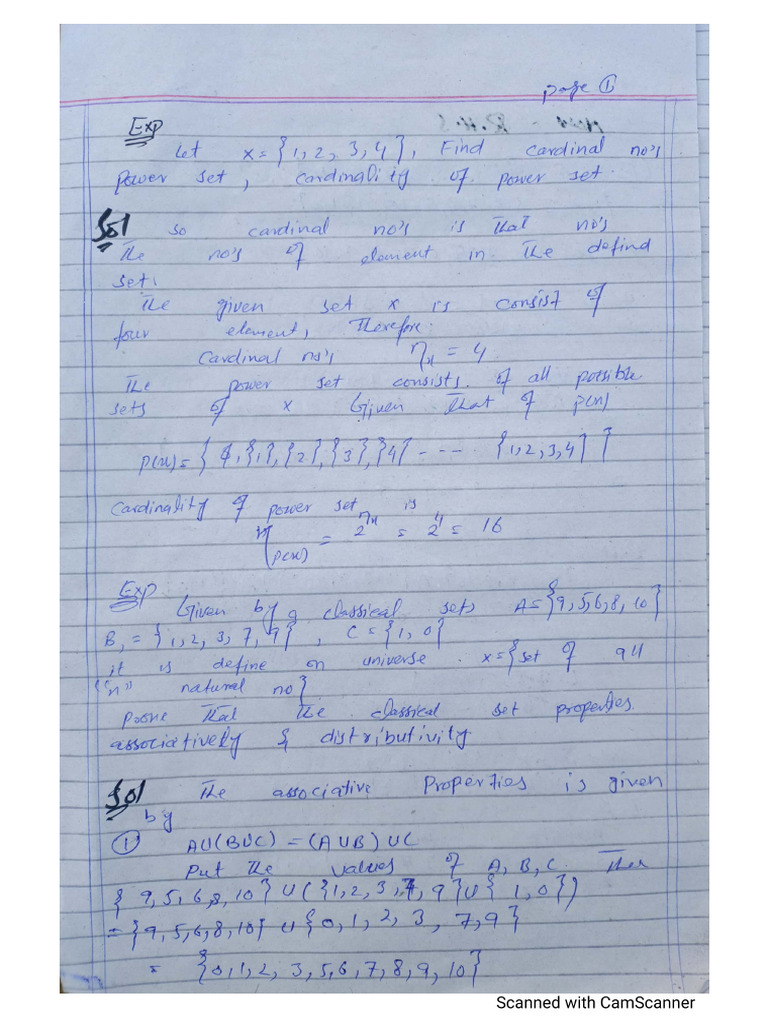 page ①
Exp
Let x = {1, 2, 3, 4}, Find cardinal no's
power set, cardinality of power set.
Sol so cardinal no's is that no's
the no's of element in the defind
set.
The given set x is consist of
four element, therefore.
Cardinal no's ηx = 4
The power set consists of all possible
sets of x Given that of p(x)
p(x) = { ϕ, {1}, {2}, {3}, {4} - - - - {1, 2, 3, 4} }
Cardinality of power set is
η p(x) = 2^ηx = 2^4 = 16
Exp
Given by a classical sets A = {9, 5, 6, 8, 10}
B, = {1, 2, 3, 7, 9}, C = {1, 0}
it is define on universe x = {set of all
"n" natural no}
prove that the classical set properties
associatively & distributivity
Sol The associative Properties is given
by
① AU(BUC) = (AUB)UC
Put the values of A, B, C Then
{9, 5, 6, 8, 10} U ({1, 2, 3, 7, 9} U {1, 0})
= {9, 5, 6, 8, 10} U {0, 1, 2, 3, 7, 9}
= {0, 1, 2, 3, 5, 6, 7, 8, 9, 10}
Scanned with CamScanner